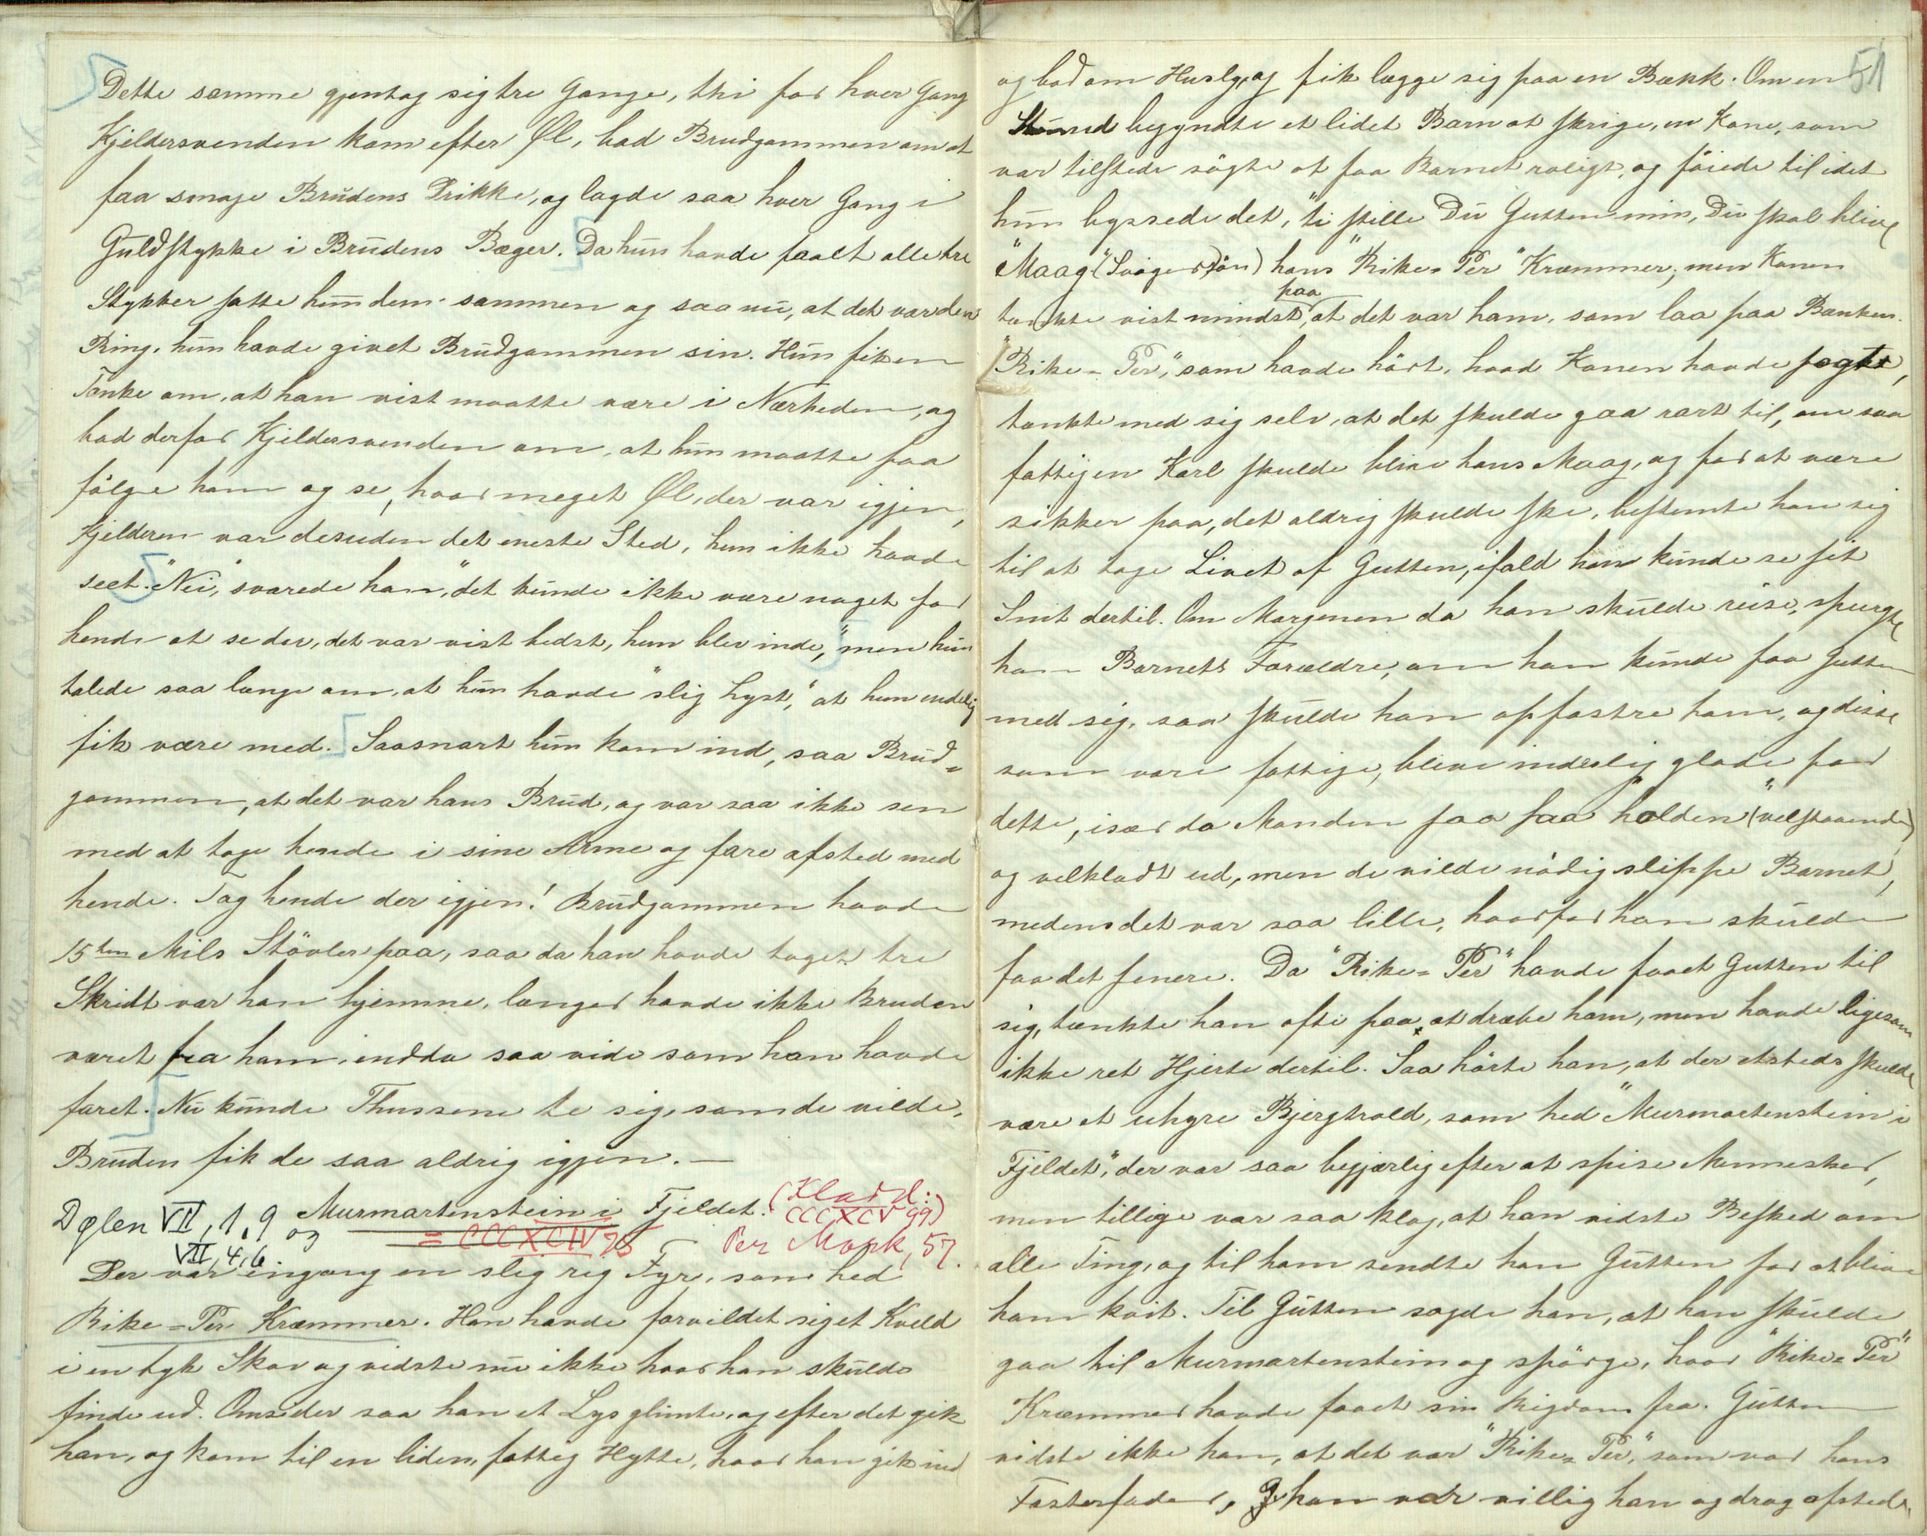 Dette samme gjentog sig tre Gange, thi for hver Gang
Kjeldersvenden kom efter Øl, bad Brudgommen om at
faa smage Brudens Drikke, og lagde saa hver Gang i
Guldstykke i Brudens Bæger. Da hun havde faaet alle tre
Stykker satte hun dem sammen og saa nu, at det var den
Ring, hun havde givet Brudgommen sin. Hun fik en
Tanke om, at han vist maatte være i Nærheden, og
bad derfor Kjeldersvenden om, at hun maatte faa
følge ham og se, hvor meget Øl, der var igjen,
Kjelderen var desuden det eneste Sted, hun ikke havde
seet. "Nei," svarede han, "det kunde ikke være noget for
hende at se der, det var vist bedst, hun blev inde," men hun
talede saa længe om, at hun havde "slig Lyst," at hun endelig
fik være med. Saasnart hun kom ind, saa Brud=
gommen, at det var hans Brud, og var saa ikke sen
med at tage hende i sine Arme og fare afsted med
hende. Tag hende der igjen! Brudgommen havde
15ten Mils Støvler paa, saa da han havde taget tre
Skridt var han hjemme, længer havde ikke Bruden
været fra ham, endda saa vide som han havde
faret. Nu kunde Thussene te sig, som de vilde,
Bruden fik de saa aldrig igjen. —
Dølen VII, 1.9 og Murmartenstein i Fjeldet. (Klad d:
VII, 4,6 = CCCXCIV 95 CCCXCV 99) Per Mork, 57.
Der var engang en slig rig Fyr, som hed
Rike=Per Kræmmer. Han havde forvildet sig et Kveld
i en tyk Skov og vidste nu ikke hvor han skulde
finde ud. Omsider saa han et Lys glimte, og efter det gik
han, og kom til en liden, fattig Hytte, hvor han gik ind
51
og bad om Husly, og fik lægge sig paa en Bænk. Om en
Stund begyndte et lidet Barn at skrige, en Kone, som
var tilstede søgte at faa Barnet roligt, og føiede til idet
hun byssede det, "ti stille Du Gutten min, Du skal blive
"Maag" (Svigersøn) hans "Rike=Per" Kræmmer, men Konen
tænkte vist mindst paa, at det var ham, som laa paa Bænken.
"Rike=Per," som havde hørt, hvad Konen havde sagt,
tænkte med sig selv, at det skulde gaa rart til, om saa
fattig en Karl skulde blive hans Maag, og for at være
sikker paa, det aldrig skulde ske, bestemte han sig
til at tage Livet af Gutten, ifald han kunde se sit
Snit dertil. Om Morgenen da han skulde reise, spurgte
han Barnets Forældre, om han kunde faa Gutten
med sig, saa skulde han opfostre ham, og disse
som vare fattige, bleve inderlig glade for
dette, især da Manden saa saa "holden" (velstaaende)
og velklædt ud, men de vilde nødig slippe Barnet,
medens det var saa lille, hvorfor han skulde
faa det senere. Da "Rike=Per" havde faaet Gutten til
sig, tænkte han ofte paa, at dræbe ham, men havde ligesom
ikke ret Hjerte dertil. Saa hørte han, at der etsteds skulde
være et uhyre Bjergtrold, som hed "Murmartenstein i
Fjeldet," der var saa begjærlig efter at spise Mennesker,
men tillige var saa klog, at han vidste Besked om
alle Ting, og til ham sendte han Gutten for at blive
ham kvit. Til Gutten sagde han, at han skulde
gaa til Murmartenstein og spørge, hvor "Rike=Per"
Kræmmer havde faaet sin Rigdom fra. Gutten
vidste ikke han, at det var "Rike=Per," som var hans
Fosterfader, han var villig han og drog afsted.